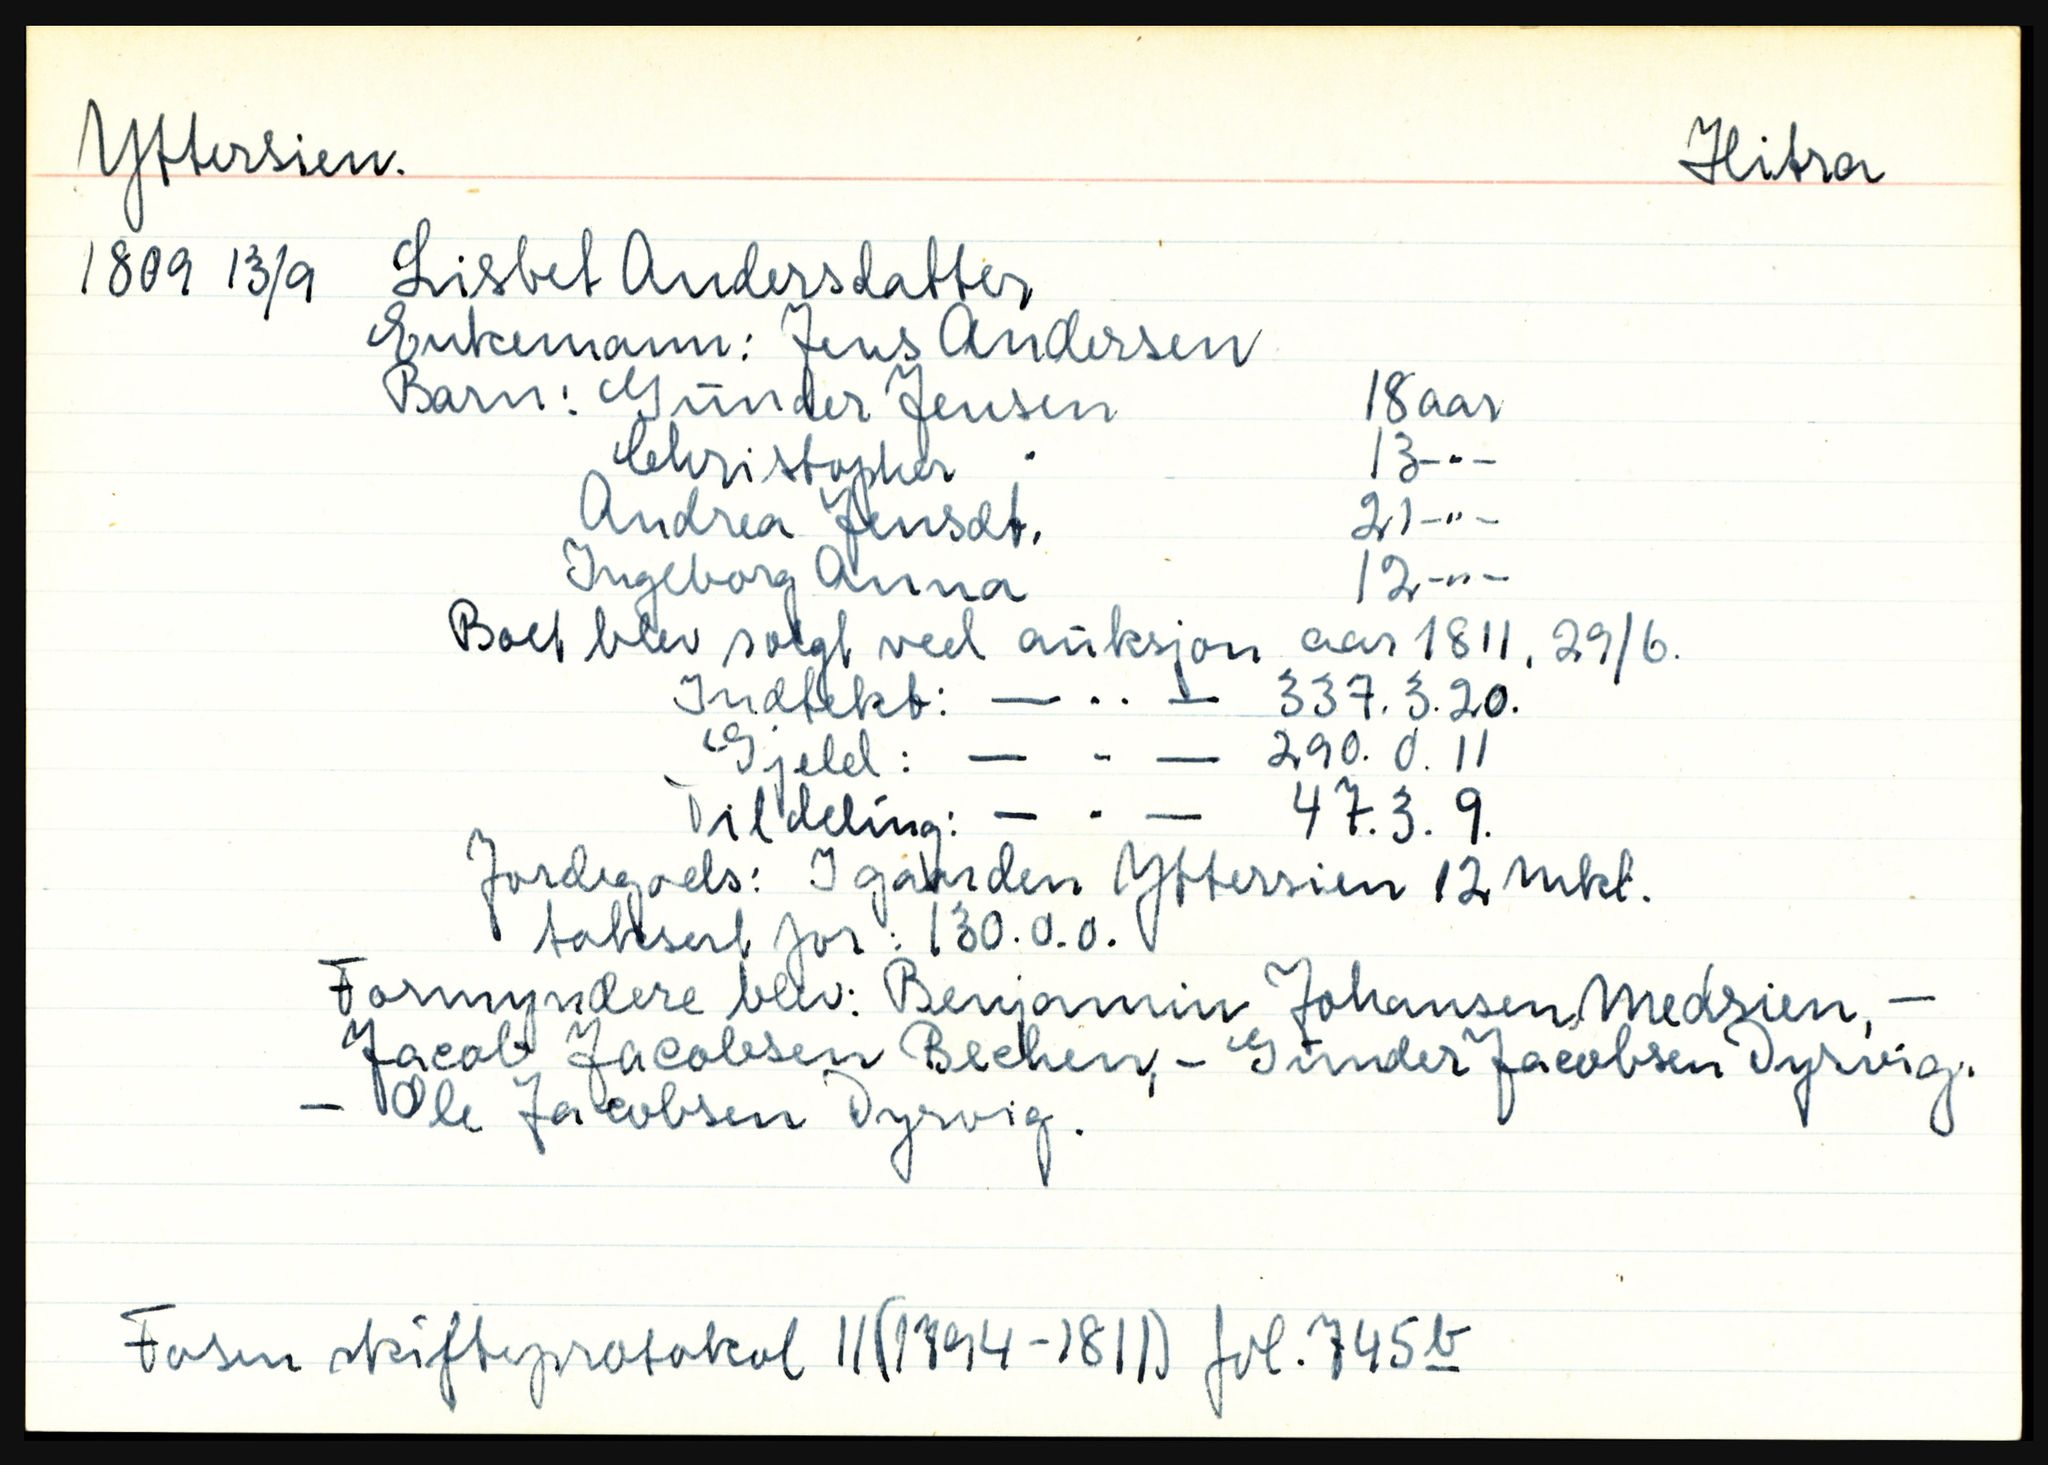 Yttersien. Hitra
1809 13/9 Lisbet Andersdatter
Enkemann: Jens Andersen
Barn: Gunder Jensen 18 aar
Christopher " 13 -"-
Andrea Jensdt. 21 -"-
Ingeborg Anna 12 -"-
Boet blev solgt ved auksjon aar 1811, 29/6.
Indtekt: — " — 337. 3. 20.
Gjeld: — " — 290. 0. 11
Til deling: — " — 47. 3. 9.
Jordegods: I gaarden Yttersien 12 mkl.
taksert for: 130. 0. 0.
Formyndere blev: Benjamin Johansen Medsien, —
Jacob Jacobsen Bechen, — Gunder Jacobsen Dyrvig.
— Ole Jacobsen Dyrvig.
Fosen skifteprotokol 11 (1794-1811) fol. 745 b